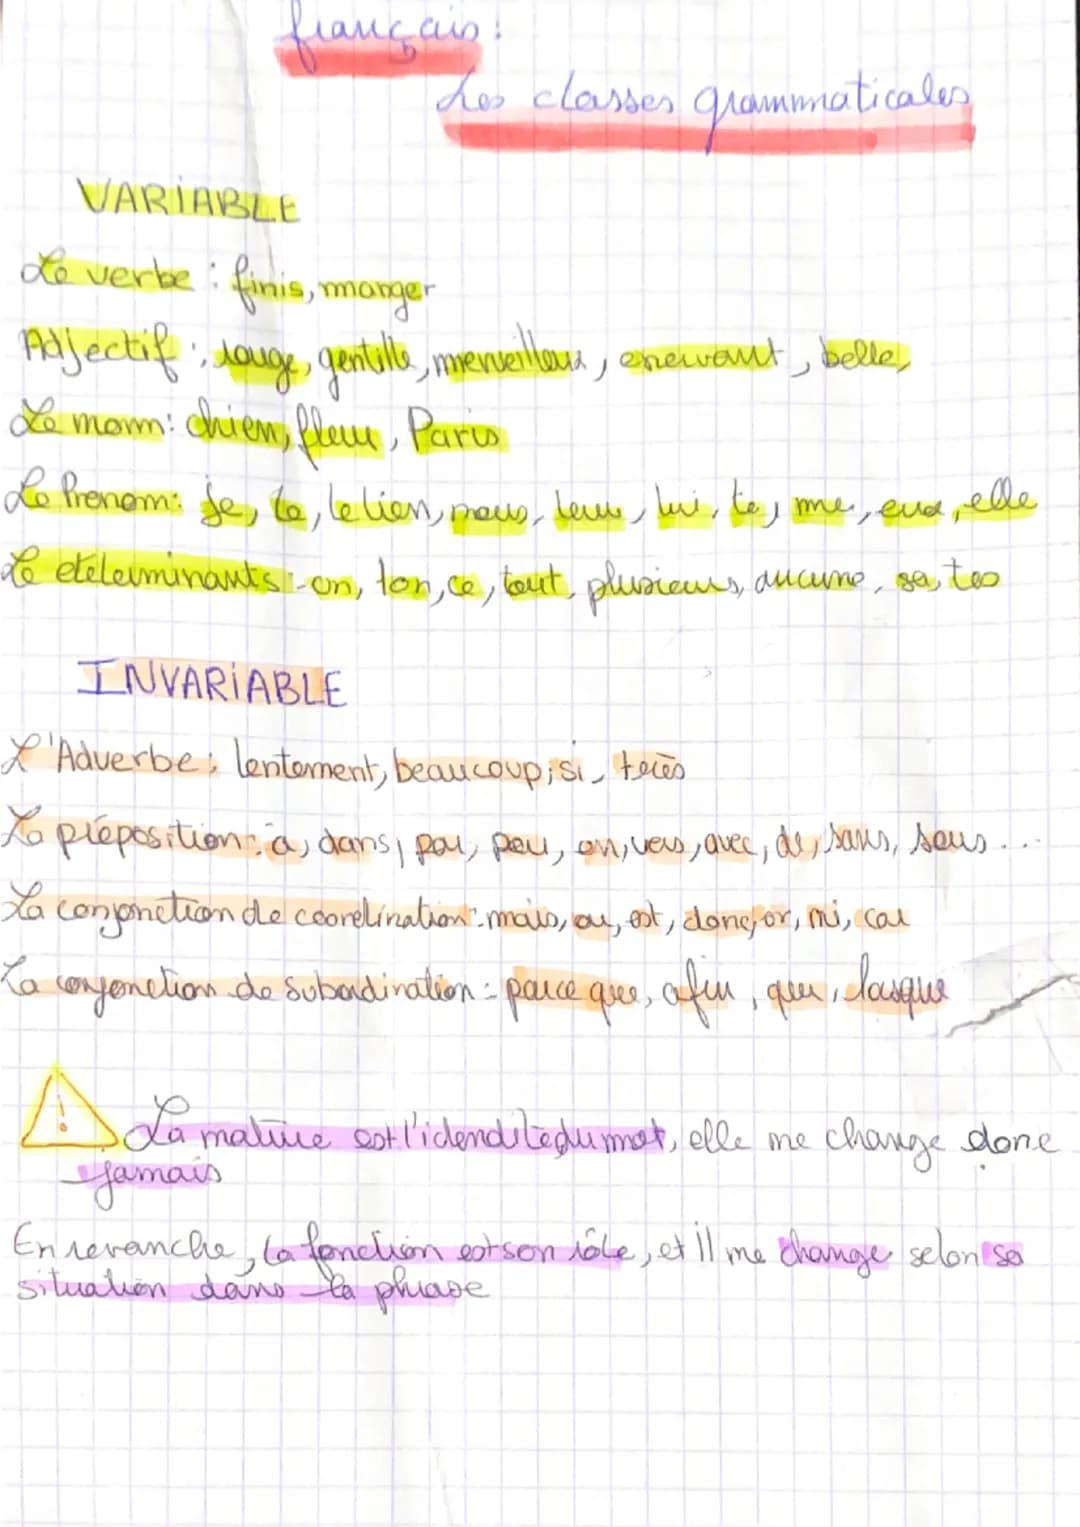 français :
Les classes grammaticales
VARIABLE
Le verbe : finis, manger
Adjectif : rouge, gentille, merveilleux, enervant, belle,
Le nom : chien, fleur, Paris
Le Pronom : je, la, le tien, nous, leur, lui, te, me, eux, elle
Le determinants : - on, ton, ce, tout, plusieurs, aucune, sa, tes
INVARIABLE
L'Adverbe : lentement, beaucoup, si, très
La préposition : à, dans, par, pour, en, vers, avec, de, sans, sous ...
La conjonction de coordination : mais, ou, est, donc, or, ni, car
La conjonction de subordination : parce que, afin, que, lorsque
! La nature est l'idendité du mot, elle ne change donc
jamais
En revanche, la fonction est son rôle, et il ne change selon sa
situation dans la phrase